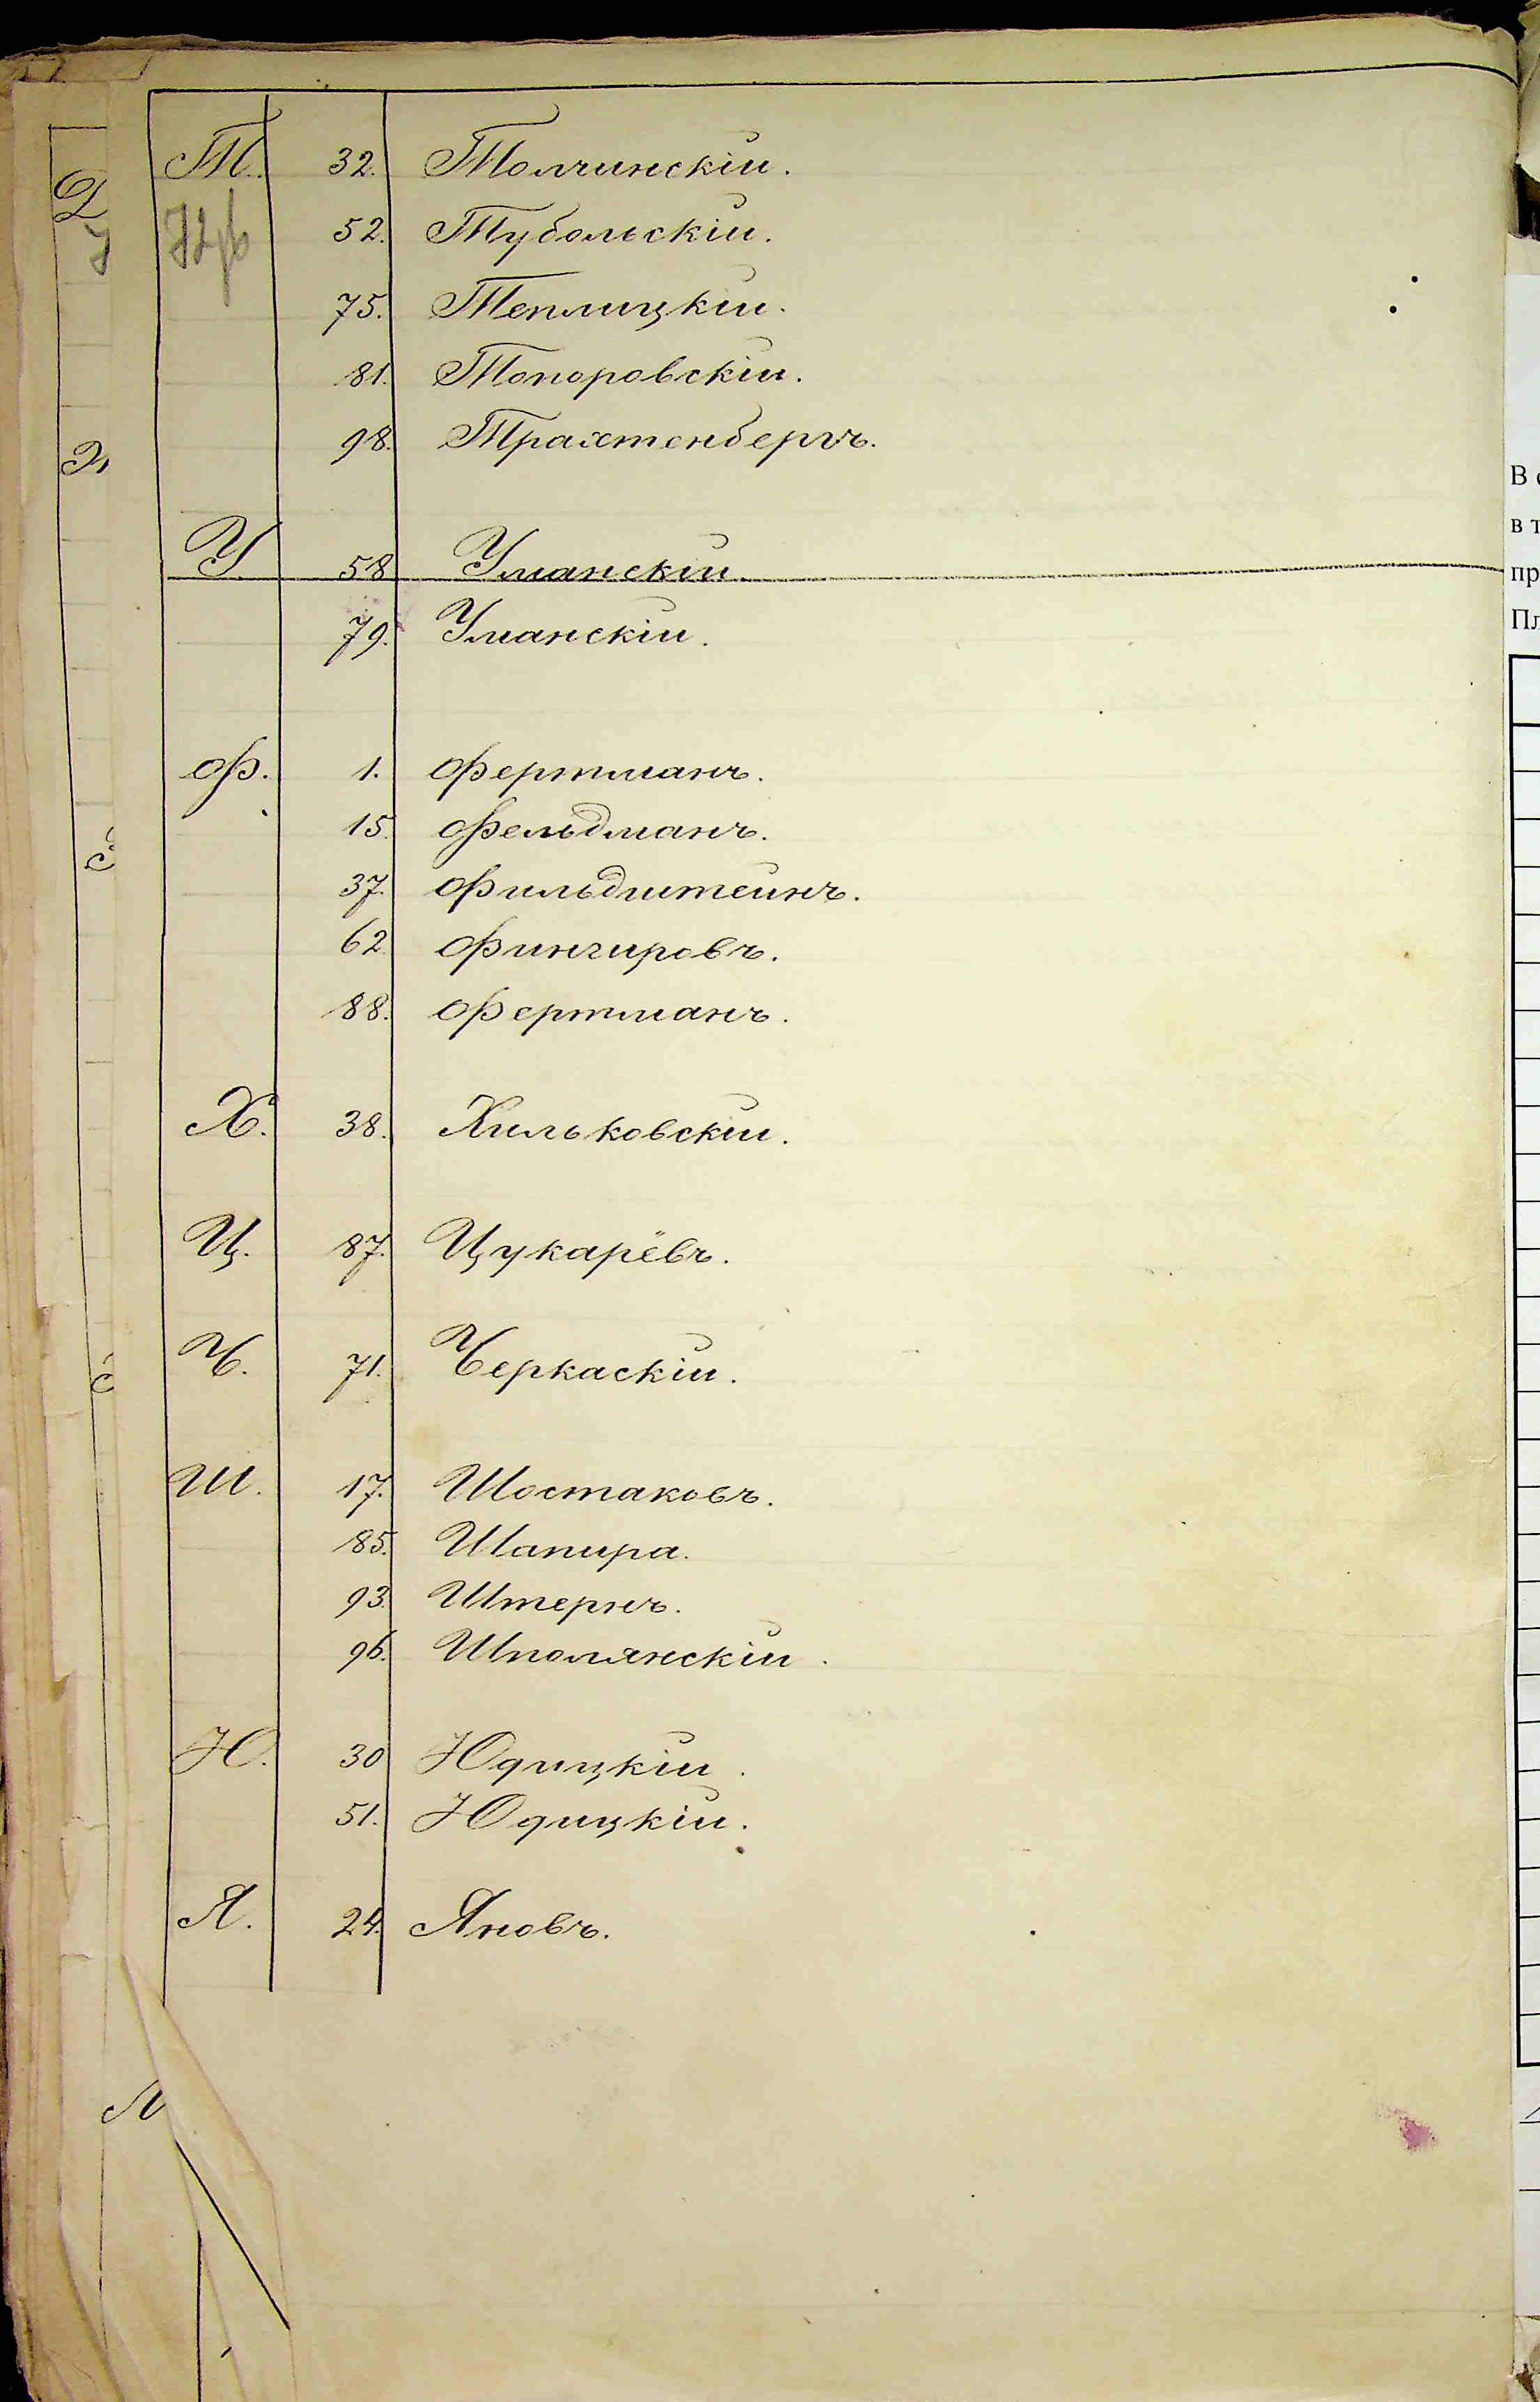 Т. 32. Толчинскій.
52. Тубольскій.
75. Теплицкій.
81. Топоровскій.
98. Трахтенбергъ.
У. 58 Уманскій.
79. Уманскій.
Ф. 1. Фертманъ.
15. Фельдманъ.
37. Фильдштейнъ.
62. Фингировъ.
88. Фертманъ.
Х. 38. Хильковскій.
Ц. 87. Цукарёвъ.
Ч. 71. Черкаскій.
Ш. 17. Шостаковъ.
85. Шапира.
93. Штернъ.
96. Шполянскій.
Ю. 30 Юдицкій.
51. Юдицкій.
Я. 24. Яновъ.